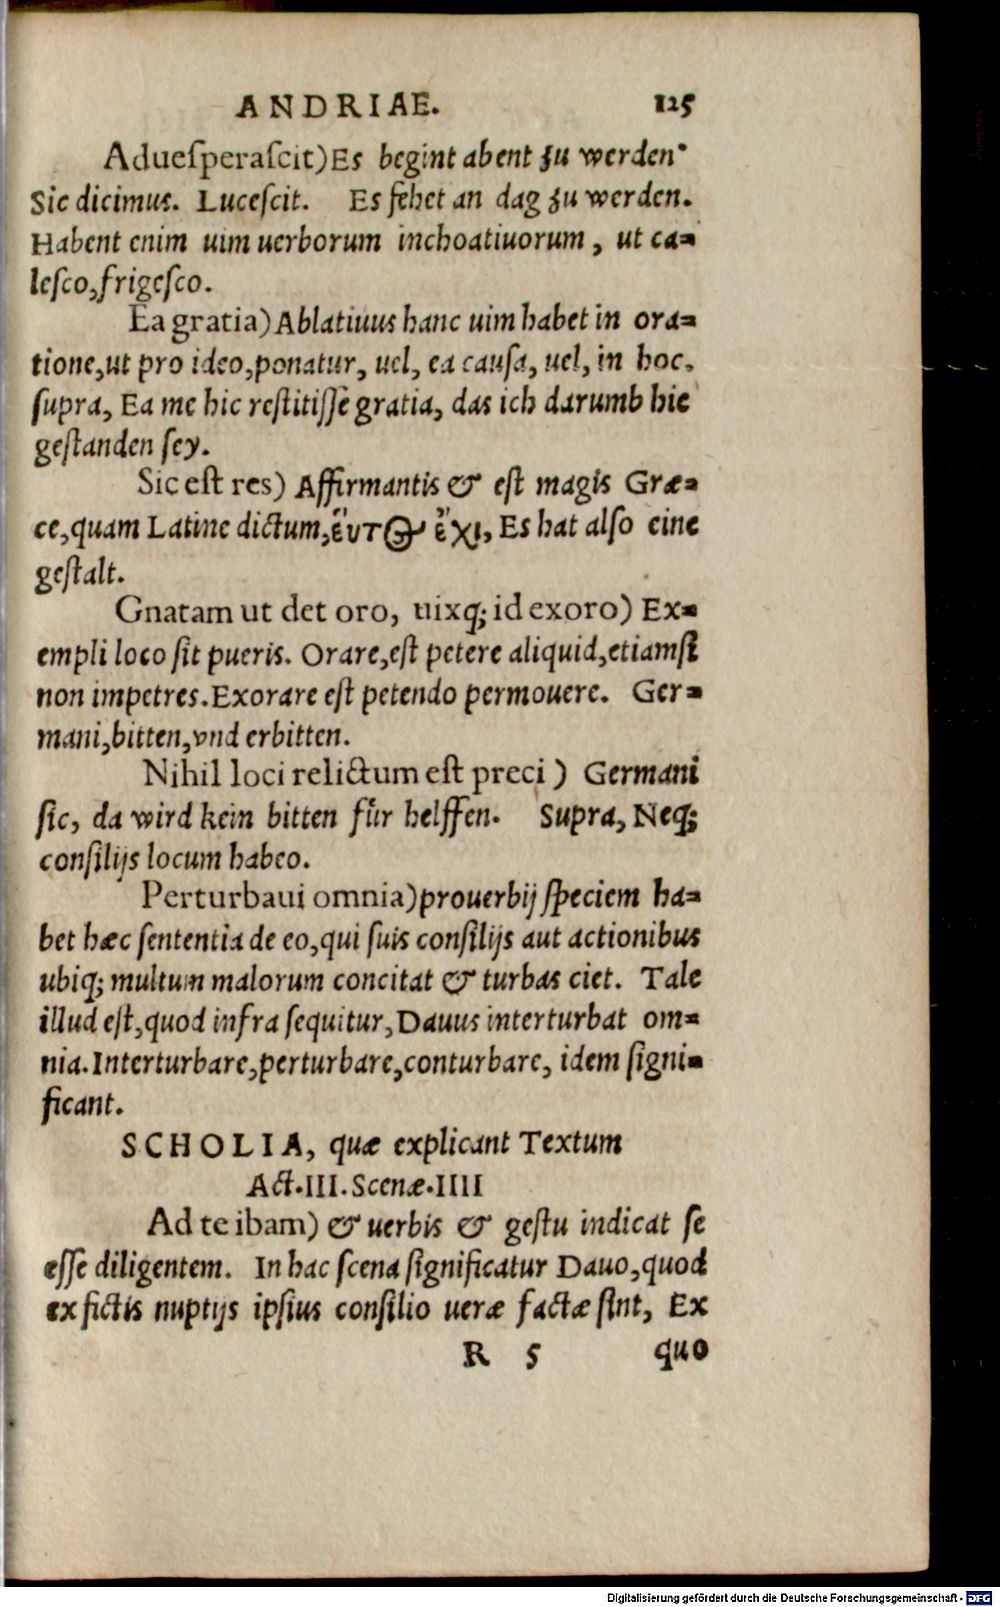 ANDRIAE. 125
Adueſperaſcit) Es begint abent zu werden
Sic dicimus. Luceſcit. Es fehet an dag zu werden.
Habent enim uim uerborum inchoatiuorum, ut ca-
leſco, frigeſco.
Ea gratia) Ablatiuus hanc uim habet in ora-
tione, ut pro ideo, ponatur, uel, ea cauſa, uel, in hoc.
ſupra, Ea me hic reſtitiſſe gratia, das ich darumb hie
geſtanden ſey.
Sic eſt res) Affirmantis & eſt magis Græ-
ce, quam Latine dictum, Es hat alſo eine
geſtalt.
Gnatam ut det oro, uixq; id exoro) Ex-
empli loco ſit pueris. Orare, eſt petere aliquid, etiamſi
non impetres. Exorare eſt petendo permouere. Ger-
mani, bitten, vnd erbitten.
Nihil loci relictum eſt preci) Germani
ſic, da wird kein bitten fuͤr helffen. Supra, Neq;
conſilijs locum habeo.
Perturbaui omnia) prouerbij ſpeciem ha-
bet hæc ſententia de eo, qui ſuis conſilijs aut actionibus
ubiq; multum malorum concitat & turbas ciet. Tale
illud eſt, quod infra ſequitur, Dauus interturbat om-
nia. Interturbare, perturbare, conturbare, idem ſigni-
ficant.
SCHOLIA, quæ explicant Textum
Act. III. Scenæ. IIII
Ad te ibam) & uerbis & geſtu indicat ſe
eſſe diligentem. In hac ſcena ſignificatur Dauo, quod
ex fictis nuptijs ipſius conſilio ueræ factæ ſint, Ex
R 5 quo
Digitalisierung gefördert durch die Deutsche Forschungsgemeinschaft - DFG